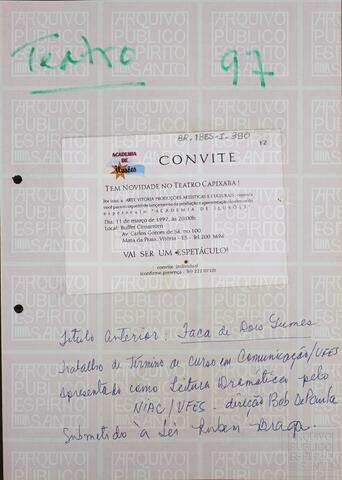 Teatro 97
BR.18ES-I-380
F2
ACADEMIA DE Ilusões
CONVITE
TEM NOVIDADE NO TEATRO CAPIXABA!
Por isso, a ARTE VITÓRIA PRODUÇÕES ARTÍSTICAS E CULTURAIS, convida
você para o coquetel de lançamento da produção e apresentação do elenco do
espetáculo "ACADEMIA DE ILUSÕES"
Dia: 11 de março de 1997, às 20:00h.
Local: Buffet Cerimonial
Av. Carlos Gomes de Sá, no 100,
Mata da Praia, Vitória - ES - Tel.
VAI SER UM ESPETÁCULO!
convite individual
(confirme presença - Tel
Título Anterior: Faca de Dois Gumes
Trabalho de Término de curso em Comunicação/UFES
Apresentado como Leitura Dramática pelo
NIAC/UFES - direção Bob DePaula
Submetido à Lei Rubem Braga.
ARQUIVO PÚBLICO ESPÍRITO SANTO